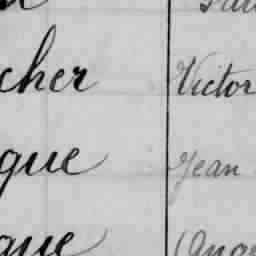 cher Victor
gue Jean
gue